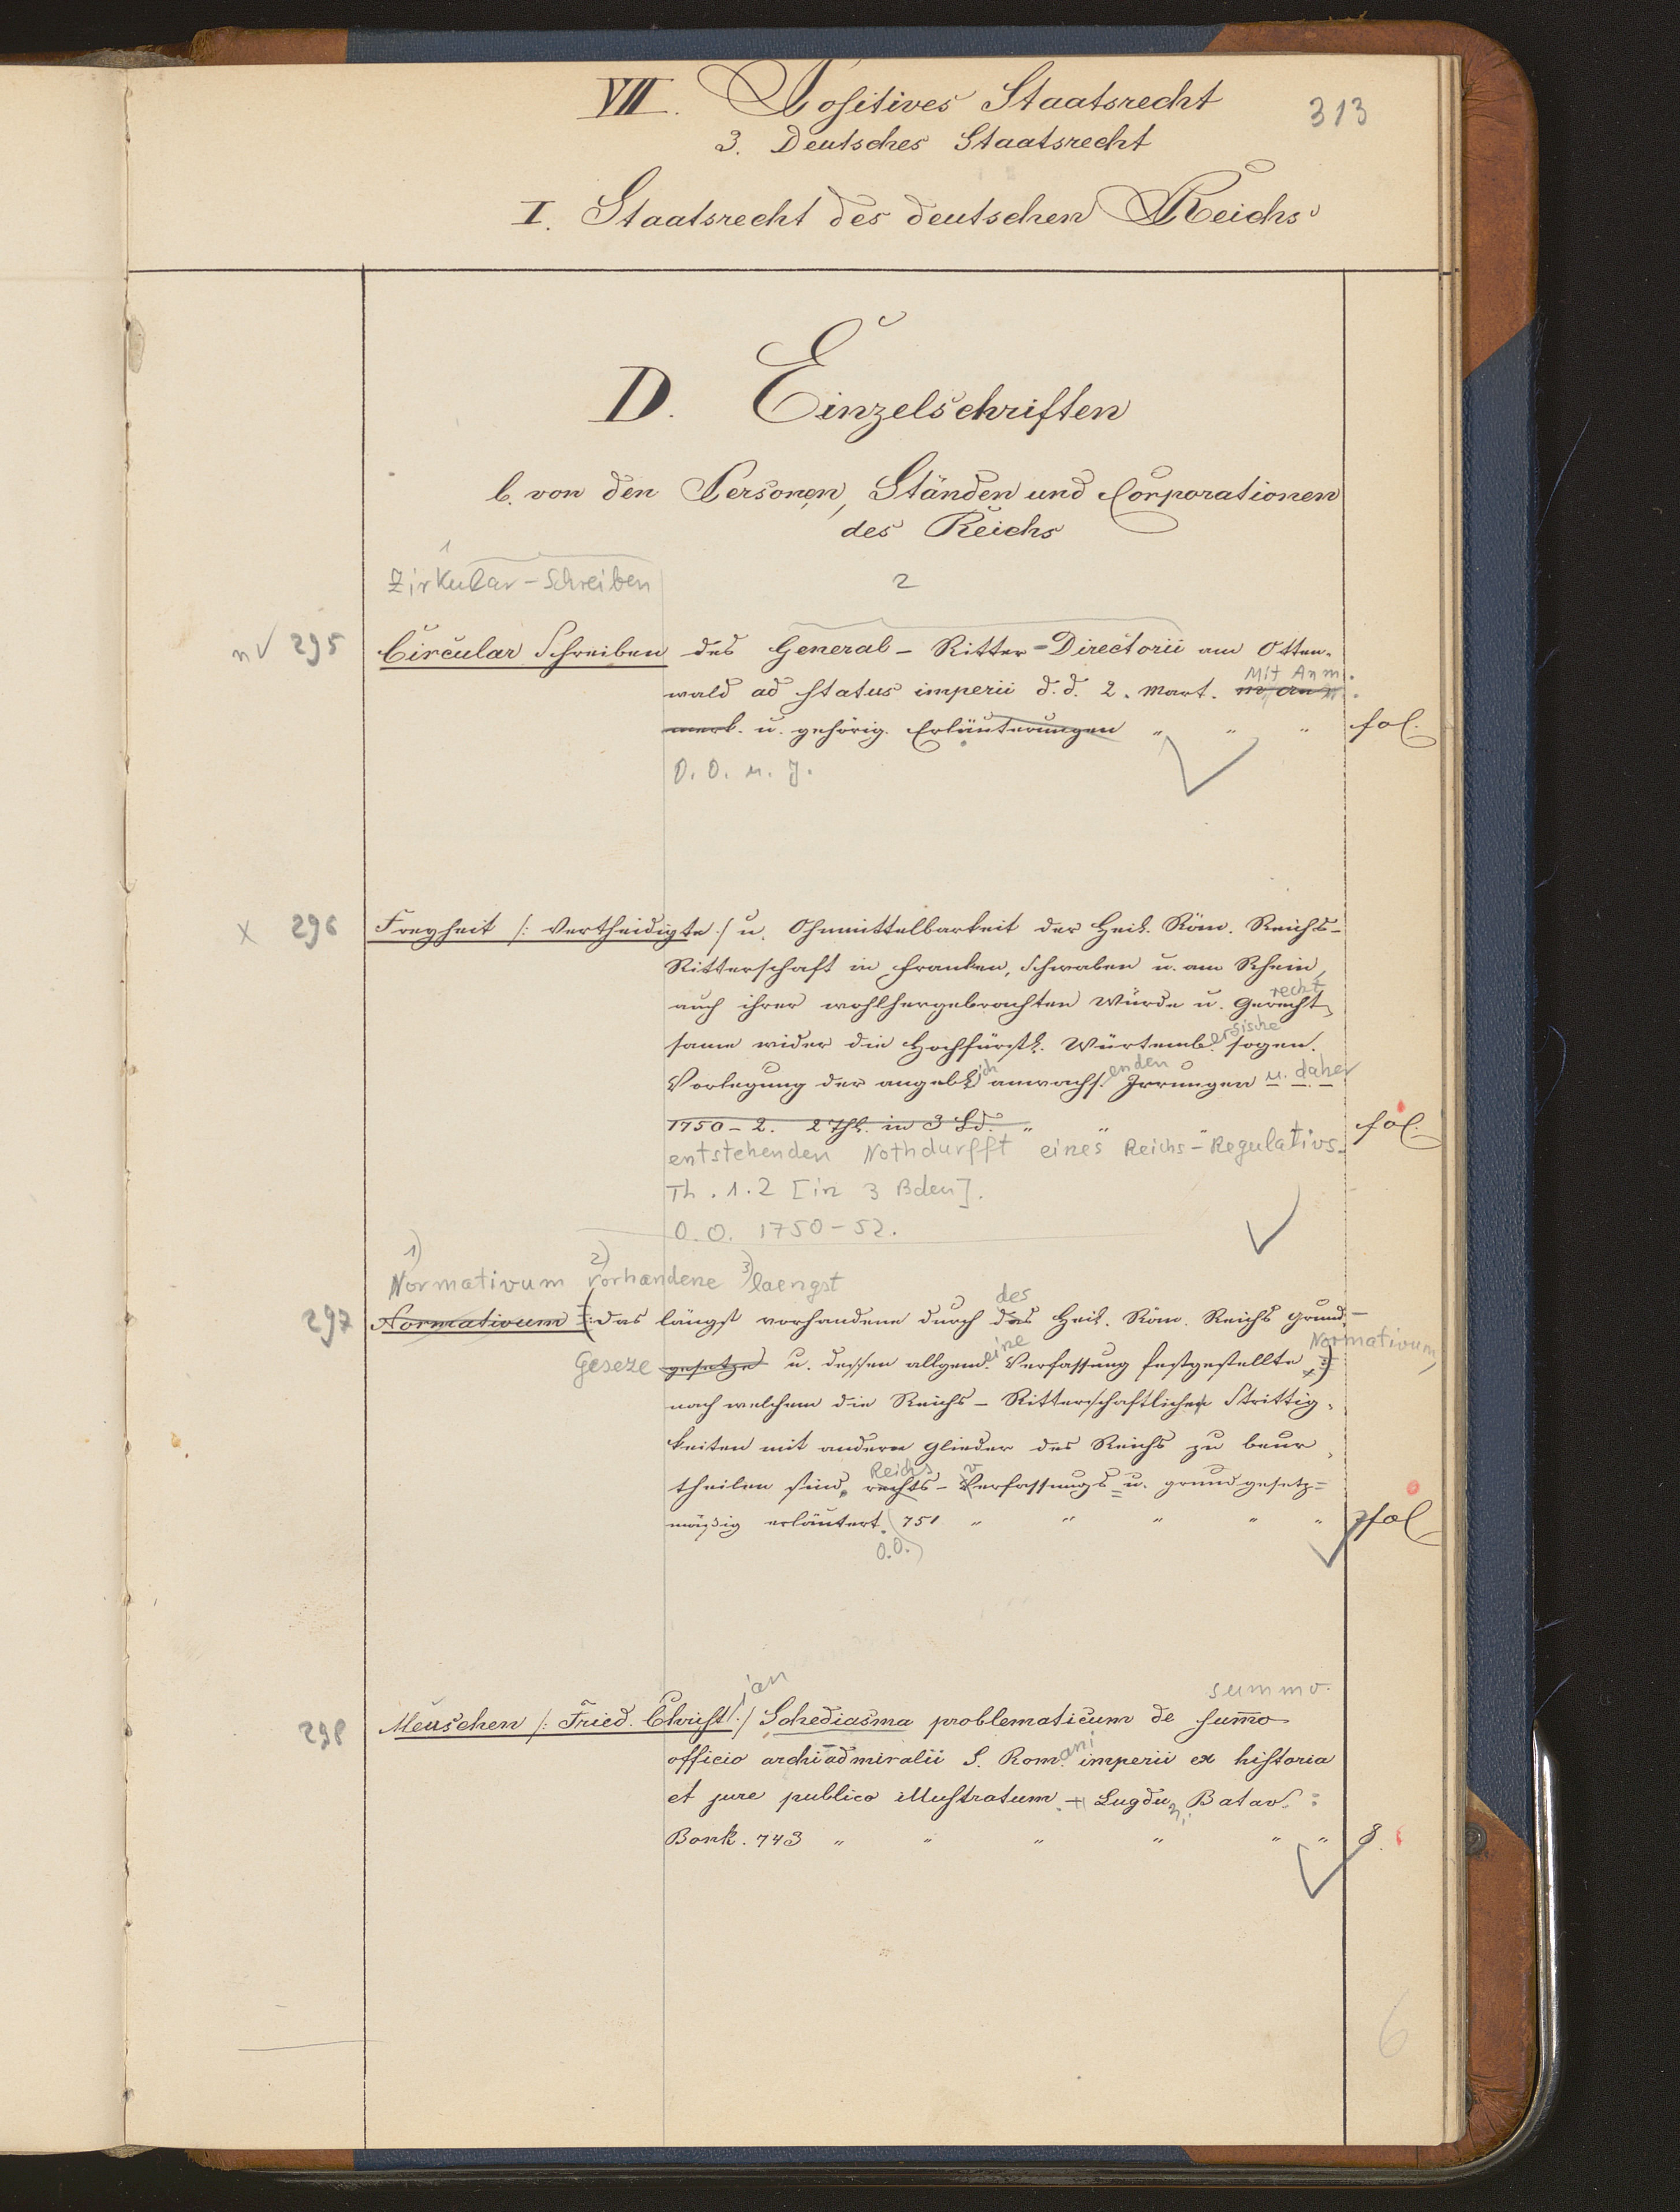 VII. Positives Staatsrecht
313
3. Deutsches Staatsrecht
I. Staatsrecht des deutschen Reichs
D. Einzelschriften
b. von den Personen, Ständen und Corporationen
des Reichs
1
Zirkular-Schreiben
2
n √ 295 Circular Schreiben des General-Ritter-Directorii am Otten-
Mit Anm.
wald ad status imperii d. d. 2. Mart. m. an
merk. u. gehörig. Erläuterungen " " " fol.
O. O. u. J.
x 296 Freyheit /: Vertheidigte :/ u. Ohnmittelbarkeit der Heil. Röm. Reichs-
Ritterschaft in Franken, Schwaben u. am Rhein,
recht
auch ihrer wohlhergebrachten Würde u. Gerecht-
ergische
same wider die Hochfürstl. Würtemb. sogen.
ich enden
Vorlegung der angebl. anwachs. Irrungen u. daher
1750-2. 2 Thl. in 3 Bd. " " " fol.
entstehenden Nothdurfft eines Reichs-Regulativs.
Th. 1. 2 [in 3 Bden].
O. O. 1750-52.
1) 2) 3)
Normativum vorhandene laengst
des
297 Normativum (: das längst vorhandene durch das Heil. Röm. Reichs Grund-
eine Normativum,
Geseze gesetze u. dessen allgem. Verfassung festgestellte :)
nach welchem die Reichs-Ritterschaftlichen Strittig-
keiten mit andern Glieder des Reichs zu beur-
Reichs v
theilen sind, rechts-Verfassungs- u. grundgesetz-
mäßig erläutert. 751 " " " " " fol
O. O.
ian summo.
298 Meuschen /: Fried. Christ. :/ Schediasma problematicum de sum̄o
ani
officio archi-admiralii S. Rom. imperii ex historia
et jure publico illustratum. Lugdu Batav. :
n.
Bonk. 743 " " " " " " 8.
6